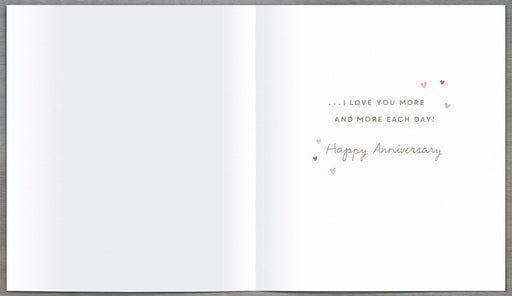 ...I LOVE YOU MORE
AND MORE EACH DAY!
Happy Anniversary